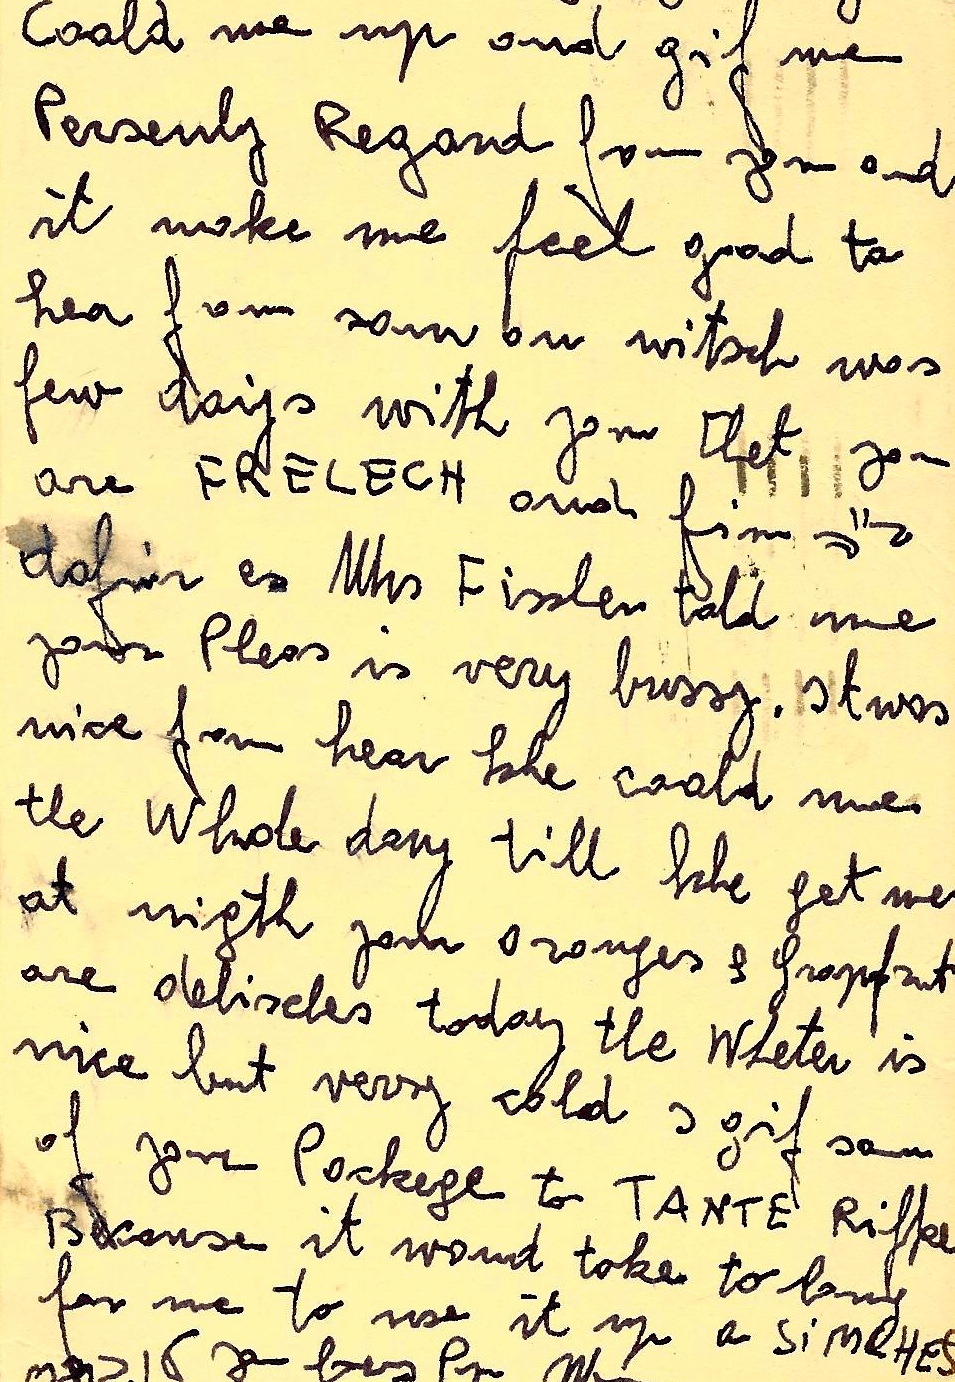 Coald me up and gif me
Persenly Regard from you and
it make me feel good to
hea from som on witsch was
few days with you thet you
are FRELECH and fim
dafuir es Mhs Fissler told me
your Pleas is very bussy. It was
nice from hear hhe coald me
the Whole day till hhe get me
at nigth your oranges & Grapfrut
are delischs today the Wheter is
nice but verry cold I gif som
of your Packege to TANTE Riffke
Because it woud take to long
for me to use it up a SIMCHES